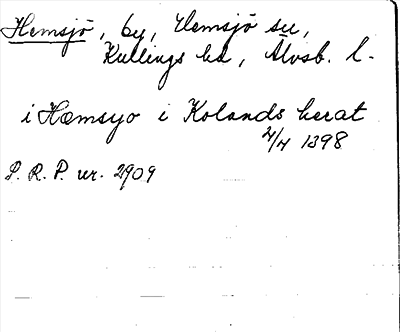 Hemsjö, by, Hemsjö sn,
Kullings hd, Älvsb. l.
i Hæmsyo i Kolands herat
4/4 1398
P. R. P. nr. 2909